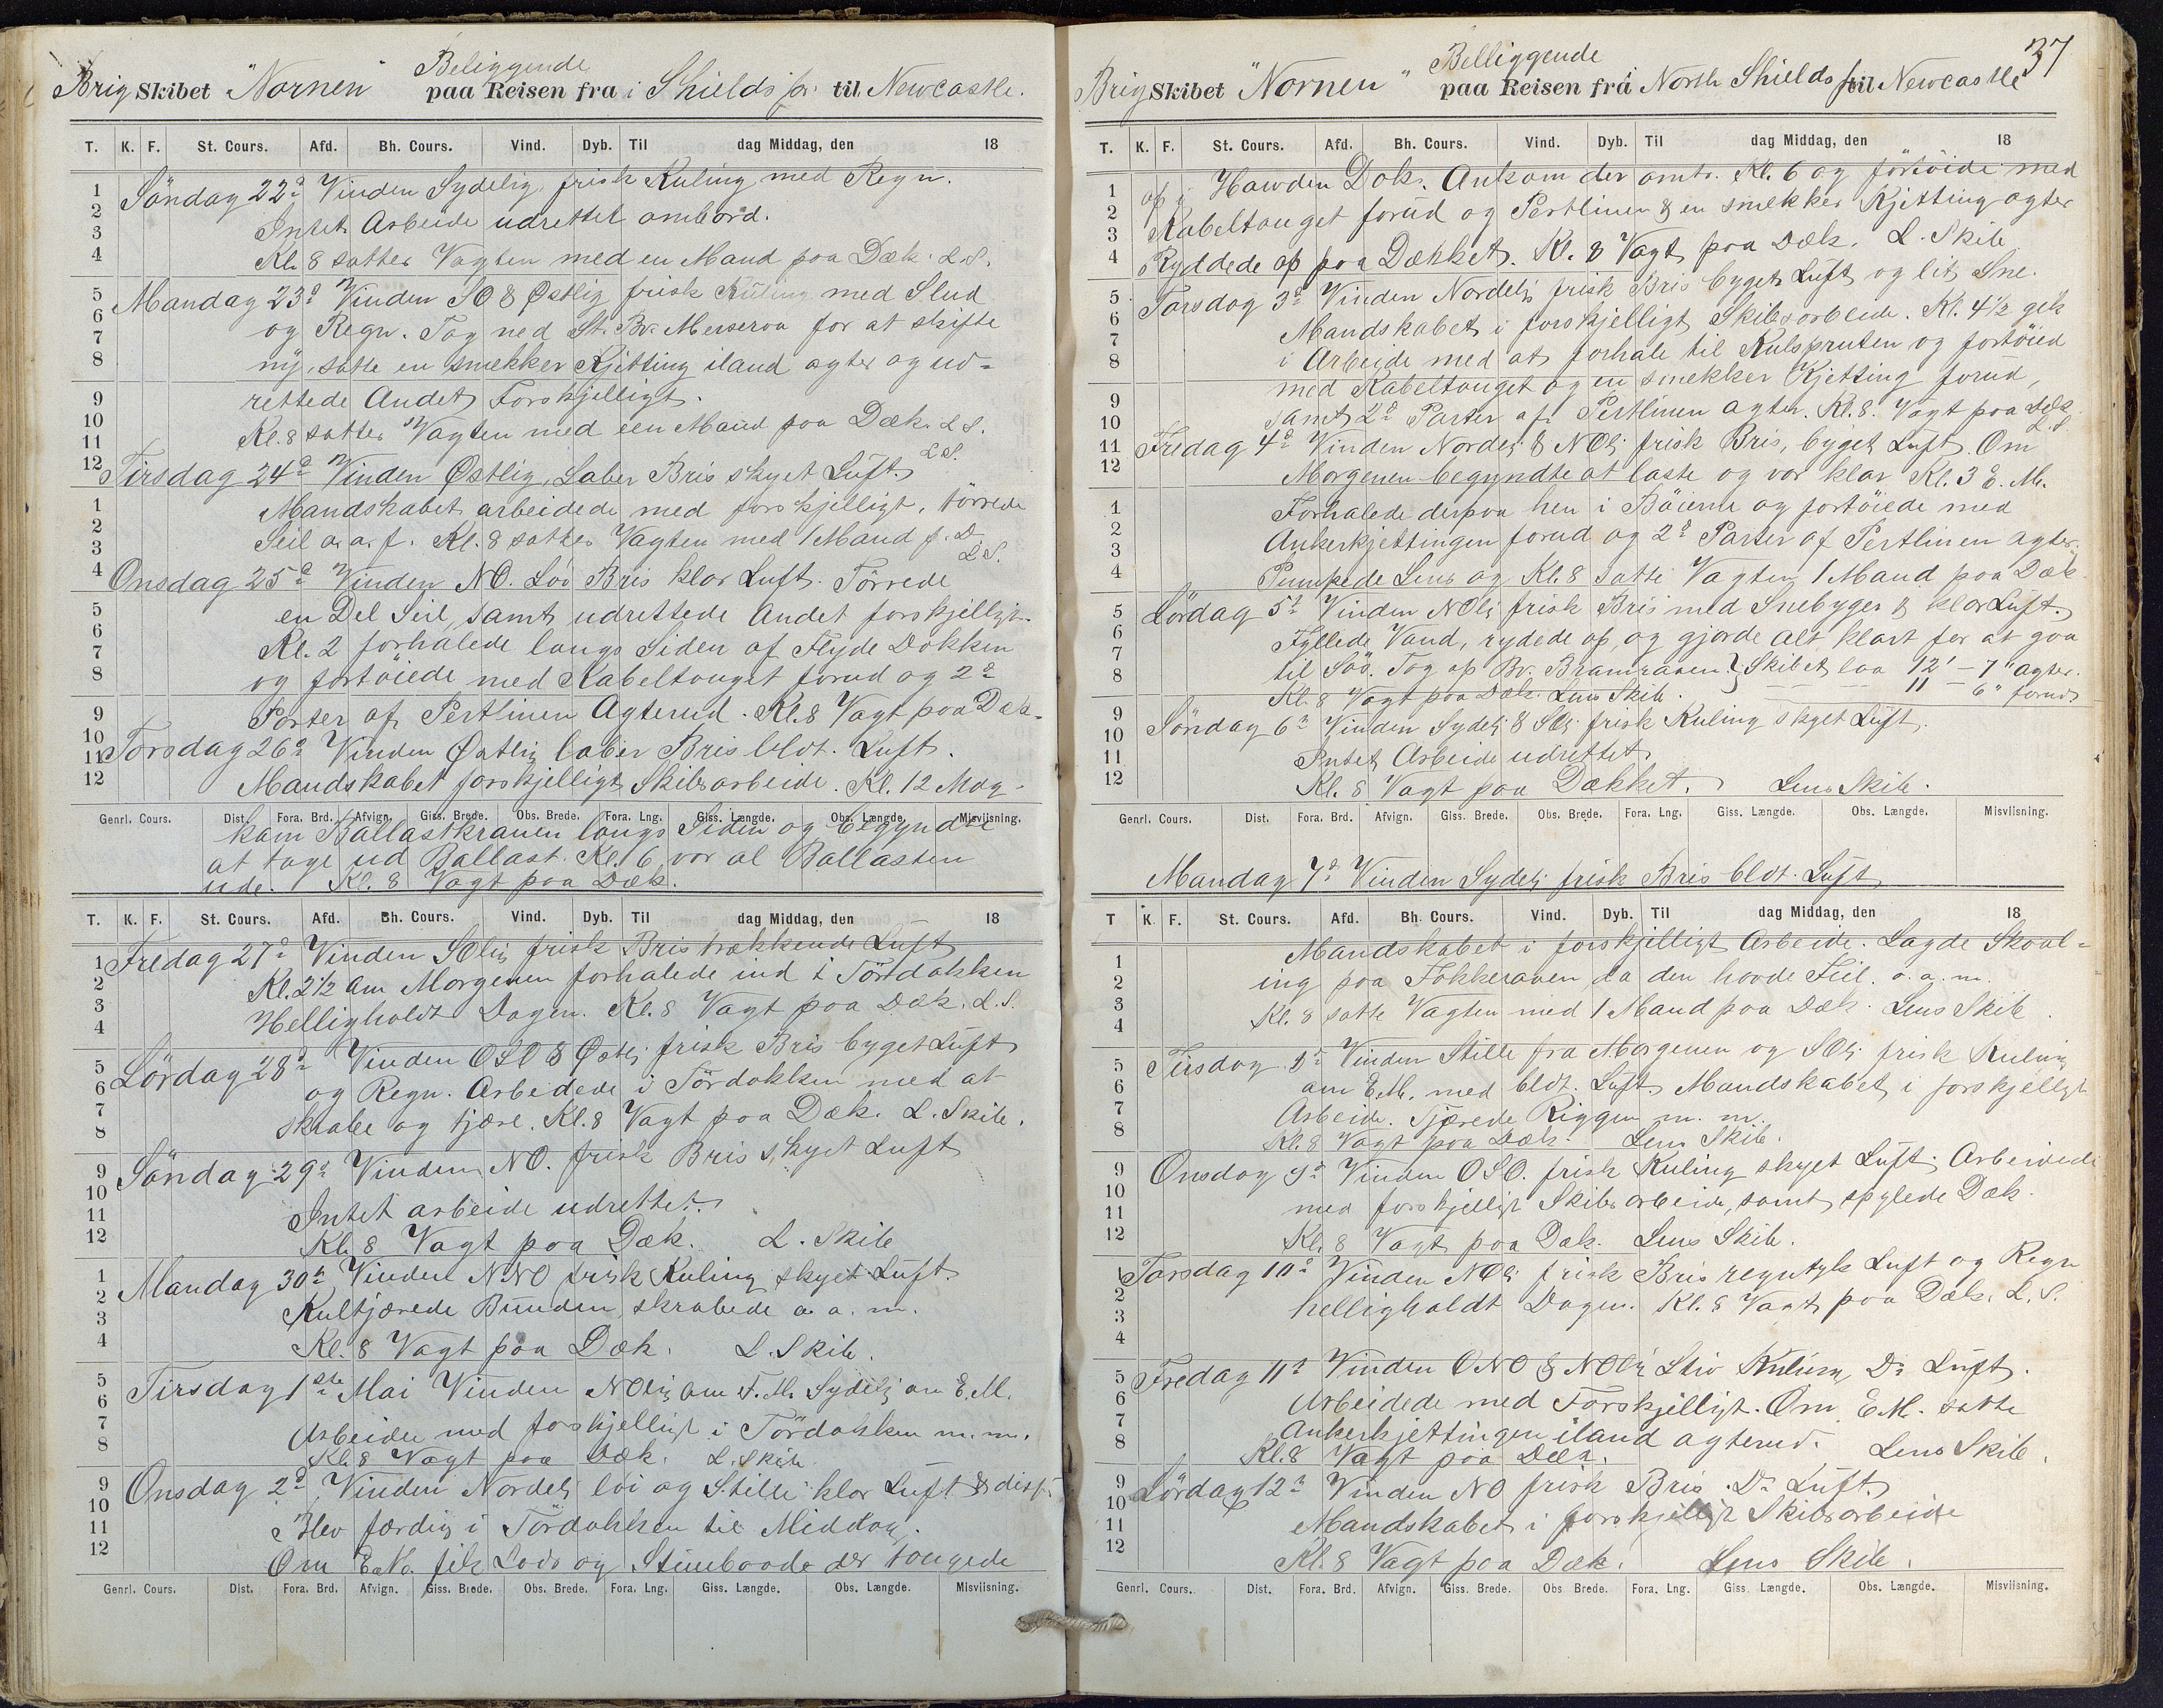 Beliggende
Brig Skibet "Nornen" paa Reisen fra i Shields for til Newcastle.
T. K. F. St. Cours. Afd. Bh. Cours. Vind. Dyb. Til dag Middag, den 18
Söndag 22d Vinden Sydelig, frisk Kuling med Regn.
Intet Arbeide udrettet ombord.
Kl. 8 sattes Vagten med en Mand paa Dæk. L.S.
Mandag 23d Vinden SO & Østlig frisk Kuling med Slud
og Regn. Tog ned St. Bv. Merseraa for at skifte
ny, satte en smekker Kjetting iland agter og ud-
rettede Andet Forskjelligt.
Kl. 8 sattes Vagten med een Mand paa Dæk. L.S.
Tirsdag 24d Vinden Østlig, Laber Bris skyet Luft. L.S.
Mandskabet arbeidede med forskjelligt, törrede
Seil o.a.f. Kl. 8 sattes Vagten med 1 Mand p. D.
L.S.
Onsdag 25d Vinden NO. Löi Bris klar Luft. Törrede
en Del Seil, samt udrettede Andet forskjelligt.
Kl. 2 forhalede langs Siden af Flyde Dokken
og fortöiede med Kabeltouget forud og 2d
Parter af Pertlinen Agterud. Kl. 8 Vagt paa Dæk.
Torsdag 26d Vinden Østlig laber Bris bldt. Luft.
Mandskabet forskjelligt Skibsarbeide. Kl. 12 Mdg.
Genrl. Cours. Dist. Fora. Brd. Afvign. Giss. Brede. Obs. Brede. Fora. Lng. Giss. Længde. Obs. Længde. Misviisning.
kam Ballastkranen langs Siden og begyndte
at tage ud Ballast. Kl. 6 var al Ballasten
ude. Kl. 8 Vagt paa Dæk.
T. K. F. St. Cours. Afd. Bh. Cours. Vind. Dyb. Til dag Middag, den 18
Fredag 27d Vinden SOlig frisk Bris trækkende Luft
Kl. 2½ om Morgenen forhalede ind i Tördokken
Helligholdt Dagen. Kl. 8 Vagt paa Dæk. L.S.
Lördag 28d Vinden OSO & Østlj frisk Bris byget Luft
og Regn. Arbeidede i Tördokken med at
skrabe og tjære. Kl. 8 Vagt paa Dæk. L. Skib.
Söndag 29d Vinden NO. frisk Bris skyet Luft
Intet arbeide udrettet.
Kl. 8 Vagt paa Dæk. L. Skib
Mandag 30d Vinden NNO frisk Kuling skyet Luft.
Kultjærede Bunden, skrabede o. a. m.
Kl. 8 Vagt paa Dæk. L. Skib.
Tirsdag 1ste Mai Vinden NOlig om F.M. Sydelj om E.M.
Arbeidee med forskjelligt i Tördokken m.m.
Kl. 8 Vagt paa Dæk. L. Skib
Onsdag 2d Vinden Nordelj löi og Stille klar Luft & disf.
Blev færdig i Tördokken til Middag.
Om E.M. fik Lods og Stimbaade der tougede
Genrl. Cours. Dist. Fora. Brd. Afvign. Giss. Brede. Obs. Brede. Fora. Lng. Giss. Længde. Obs. Længde. Misviisning.
37
Belliggende
Brig Skibet "Nornen" paa Reisen fra i North Shields for til Newcastle
T. K. F. St. Cours. Afd. Bh. Cours. Vind. Dyb. Til dag Middag, den 18
op i Hawden Dok. Ankom der omtr. Kl. 6 og förtöide med
Kabeltouget forud og Pertlinen & en smekker Kjetting agter
Ryddede op paa Dækket. Kl. 8 Vagt paa Dæk. L. Skib
Torsdag 3d Vinden Nordelj frisk Bris byget Luft og lit Sne.
Mandskabet i forskjelligt Skibsarbeide. Kl. 4½ gik
i Arbeide med at forhale til Kulspruten og fortöied
med Kabeltouget og en smekker Kjetting forud,
samt 2d Parter af Pertlinen agter. Kl. 8. Vagt paa Dæk
L.S.
Fredag 4d Vinden Nordelj & NOlj frisk Bris, byget Luft. Om
Morgenen begyndte at laste og var klar Kl. 3 E.M.
Forhalede derpaa hen i Böierne og fortöiede med
Ankerkjettingen forud og 2d Parter af Pertlinen agter.
Pumpede Lens og Kl. 8 satte Vagten 1 Mand paa Dæk
Lördag 5t Vinden NOlj frisk Bris med Snebyger & klar Luft.
Fyllede Vand, rydede op, og gjorde alt klart for at gaa
til Söö. Tog op Bv. Bramraaen } Skibet laa 12' - 7" agter.
Kl. 8 Vagt paa Dæk. Lens Skib. 11 - 6" forud
Söndag 6t Vinden Sydelj & SOlj frisk Kuling skyet Luft.
Intet Arbeide udrettet
Kl. 8 Vagt paa Dækket. Lens Skib.
Genrl. Cours. Dist. Fora. Brd. Afvign. Giss. Brede. Obs. Brede. Fora. Lng. Giss. Længde. Obs. Længde. Misviisning.
Mandag 7d Vinden Sydelj frisk Bris bldt. Luft
T K. F. St. Cours. Afd. Bh. Cours. Vind. Dyb. Til dag Middag, den 18
Mandskabet i forskjelligt Arbeide. Lagde Skaal-
ing paa Fokkeraaen da den havde Feil. o. a. m.
Kl. 8 satte Vagten med 1 Mand paa Dæk. Lens Skib.
Tirsdag 8d Vinden Stille fra Morgenen og SOlj frisk Kuling
om E.M. med bldt. Luft. Mandskabet i forskjelligt
Arbeide. Tjærede Riggen m. m.
Kl. 8 Vagt paa Dæk. Lens Skib.
Onsdag 9d Vinden OSO. frisk Kuling skyet Luft. Arbeidede
med forskjelligt Skibsarbeide, samt spylede Dæk.
Kl. 8 Vagt paa Dæk. Lens Skib.
Torsdag 10d Vinden NOlj frisk Bris regntyk Luft og Regn
helligholdt Dagen. Kl. 8 Vagt paa Dæk. L. S.
Fredag 11d Vinden ONO & NOlj Stiv Kuling Do Luft.
Arbeidede med Forskjelligt. Om E.M. satte
Ankerkjettingen iland agterud. Lens Skib.
Kl. 8 Vagt paa Dæk.
Lördag 12d Vinden NO frisk Bris. Do Luft.
Mandskabet i forskjelligt Skibsarbeide
Kl. 8 Vagt paa Dæk. Lens Skib.
Genrl. Cours. Dist. Fora. Brd. Afvign. Giss. Brede. Obs Brede. Fora. Lng. Giss Længde. Obs. Længde. Misviisning.